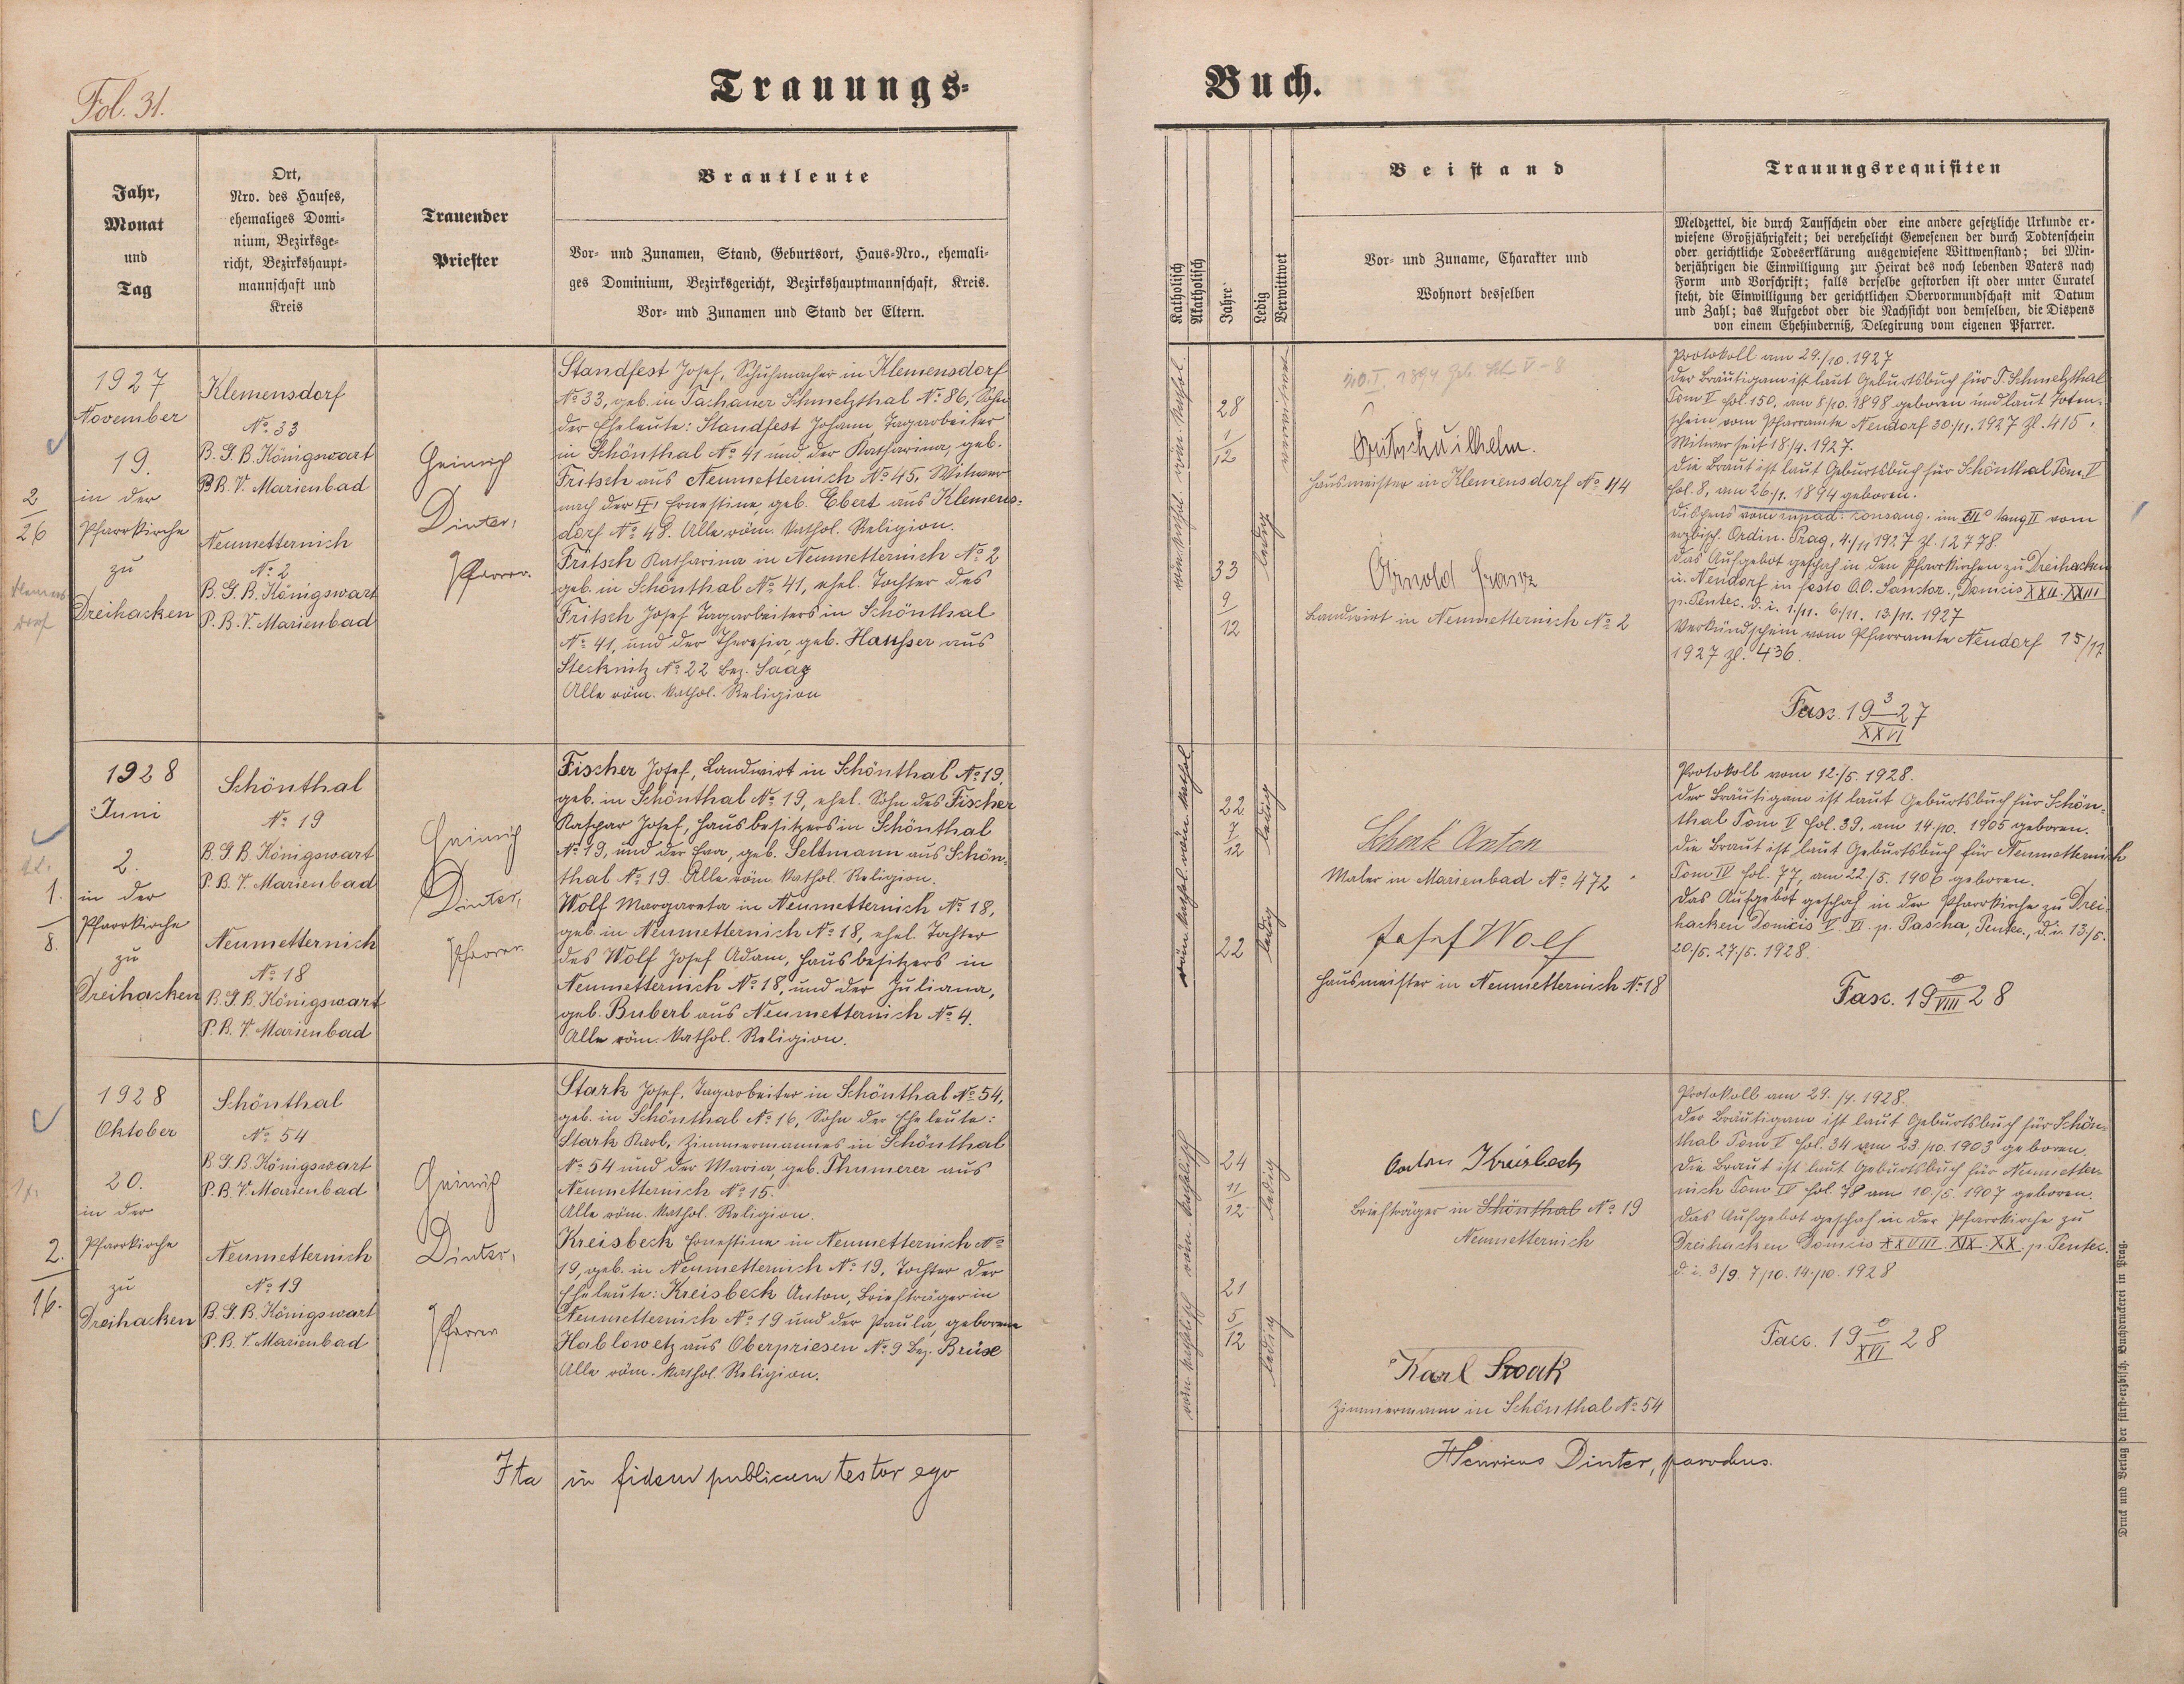 Fol. 31.
Trauungs-
Buch.
Jahr,
Monat
und
Tag
Ort,
Nro. des Hauses,
ehemaliges Domi-
nium, Bezirksge-
richt, Bezirkshaupt-
mannschaft und
Kreis
Trauender
Priester
Brautleute
Vor- und Zunamen, Stand, Geburtsort, Haus-Nro., ehemali-
ges Dominium, Bezirksgericht, Bezirkshauptmannschaft, Kreis.
Vor- und Zunamen und Stand der Eltern.
Katholisch
Akatholisch
Jahre
Ledig
Verwittwet
Beistand
Vor- und Zuname, Charakter und
Wohnort desselben
Trauungsrequisiten
Meldzettel, die durch Taufschein oder eine andere gesetzliche Urkunde er-
wiesene Großjährigkeit; bei verehelicht Gewesenen der durch Todtenschein
oder gerichtliche Todeserklärung ausgewiesene Wittwenstand; bei Min-
derjährigen die Einwilligung zur Heirat des noch lebenden Vaters nach
Form und Vorschrift; falls derselbe gestorben ist oder unter Curatel
steht, die Einwilligung der gerichtlichen Obervormundschaft mit Datum
und Zahl; das Aufgebot oder die Nachsicht von demselben, die Dispens
von einem Ehehinderniß, Delegirung vom eigenen Pfarrer.
1927
November
19.
in der
Pfarrkirche
zu
Dreihacken
2
26
Klemensdorf
No. 33
B. G. B. Königswart
P. B. V. Marienbad
Neumetternich
No. 2
B. G. B. Königswart
P. B. V. Marienbad
Heinrich
Dinter,
Pfarrer.
Standfest Josef, Schuhmacher in Klemensdorf
No. 33, geb. in Tachauer Schmelzthal No. 86, Sohn
der Eheleute: Standfest Johann, Tagarbeiter
in Schönthal No. 41 und der Katharina, geb.
Fritsch aus Neumetternich No. 45, Witwer
nach der Ernestine, geb. Ebert aus Klemens-
dorf No. 48. Alle röm. kathol. Religion.
Fritsch Katharina in Neumetternich No. 2
geb. in Schönthal No. 41, ehel. Tochter des
Fritsch Josef Tagarbeiters in Schönthal
No. 41, und der Theresia, geb. Hausser aus
Stecknitz No. 22 Bez. Saaz
Alle röm. kathol. Religion
röm. kathol. röm. kathol.
28
1
12
verwitwet
33
9
12
ledig
Fritsch Wilhelm.
Hausmeister in Klemensdorf No. 44
Arnold Franz
Landwirt in Neumetternich No. 2
Protokoll am 29./10. 1927
Der Bräutigam ist laut Geburtsbuch für T. Schmelzthal
Tom V fol. 150, am 8/10. 1898 geboren und laut Toten-
schein vom Pfarramte Neudorf 30/11. 1927 Zl. 415.
Witwer seit 18/4. 1927.
Die Braut ist laut Geburtsbuch für Schönthal Tom. V
fol. 8, am 26./1. 1894 geboren.
Dispens vom imped. consang. im III° tang II vom
erzbisch. Ordin. Prag, 4./11 1927 Zl. 12778.
Das Aufgebot geschah in den Pfarrkirchen zu Dreihacken
u. Neudorf in festo O.O. Sanctor., Domicis XXII. XXIII
p. Pentec. d. i. 1./11. 6/11. 13/11. 1927
Verkündschein vom Pfarramte Neudorf 15/11
1927 Zl. 436.
Fasc. 19 3/XXVI 27
1928
Juni
2.
in der
Pfarrkirche
zu
Dreihacken
1.
8.
Schönthal
No. 19
B. G. B. Königswart
P. B. V. Marienbad
Neumetternich
No. 18
B. G. B. Königswart
P. B. V. Marienbad
Heinrich
Dinter,
Pfarrer.
Fischer Josef, Landwirt in Schönthal No. 19,
geb. in Schönthal No. 19, ehel. Sohn des Fischer
Kaspar Josef, Hausbesitzers in Schönthal
No. 19, und der Eva, geb. Seltmann aus Schön-
thal No. 19. Alle röm. kathol. Religion.
Wolf Margareta in Neumetternich No. 18,
geb. in Neumetternich No. 18, ehel. Tochter
des Wolf Josef Adam, Hausbesitzers in
Neumetternich No. 18, und der Juliana,
geb. Buberl aus Neumetternich No. 4.
Alle röm. kathol. Religion.
röm. kathol. röm. kathol
22
7
12
ledig
22
ledig
Schenk Anton
Maler in Marienbad No. 472
Josef Wolf
Hausmeister in Neumetternich No. 18
Protokoll vom 12./5. 1928.
Der Bräutigam ist laut Geburtsbuch für Schön-
thal Tom V fol. 39, am 14./10. 1905 geboren.
Die Braut ist laut Geburtsbuch für Neumetternich
Tom IV fol. 77, am 22./5. 1906 geboren.
Das Aufgebot geschah in der Pfarrkirche zu Drei-
hacken Domicis V. VI. p. Pascha, Pentec., d. i. 13/5.
20/5. 27/5. 1928.
Fasc. 19 0/VIII 28
1928
Oktober
20.
in der
Pfarrkirche
zu
Dreihacken
2.
16.
Schönthal
No. 54
B. G. B. Königswart
P. B. V. Marienbad
Neumetternich
No. 19
B. G. B. Königswart
P. B. V. Marienbad
Heinrich
Dinter,
Pfarrer
Stark Josef, Tagarbeiter in Schönthal No. 54,
geb. in Schönthal No. 16, Sohn der Eheleute:
Stark Karl, Zimmermannes in Schönthal
No. 54 und der Maria, geb. Thumerer aus
Neumetternich No. 15.
Alle röm. kathol. Religion.
Kreisbeck Ernestine in Neumetternich No.
19, geb. in Neumetternich No. 19, Tochter der
Eheleute: Kreisbeck Anton, Briefträger in
Neumetternich No. 19 und der Paula, geborene
Hablowetz aus Oberpriesen No. 9 Bez. Brüx
Alle röm. kathol. Religion.
röm. katholisch röm. katholisch
24
11
12
ledig
21
5
12
ledig
Anton Kreisbeck
Briefträger in Schönthal No. 19
Neumetternich
Karl Stark
Zimmermann in Schönthal No. 54
Protokoll am 29. /9. 1928.
Der Bräutigam ist laut Geburtsbuch für Schön-
thal Tom V fol. 34 am 23./10. 1903 geboren.
Die Braut ist laut Geburtsbuch für Neumetter-
nich Tom IV fol. 78 am 10./5. 1907 geboren.
Das Aufgebot geschah in der Pfarrkirche zu
Dreihacken Domicis XXVIII. XIX. XX. p. Pentec.
d. i. 3/9. 7/10. 14./10. 1928
Fasc. 19 0/XVI 28
Ita in fidem publicam testor ego
Henricus Dinter, parochus.
Druck und Verlag der fürst-erzbisch. Buchdruckerei in Prag.